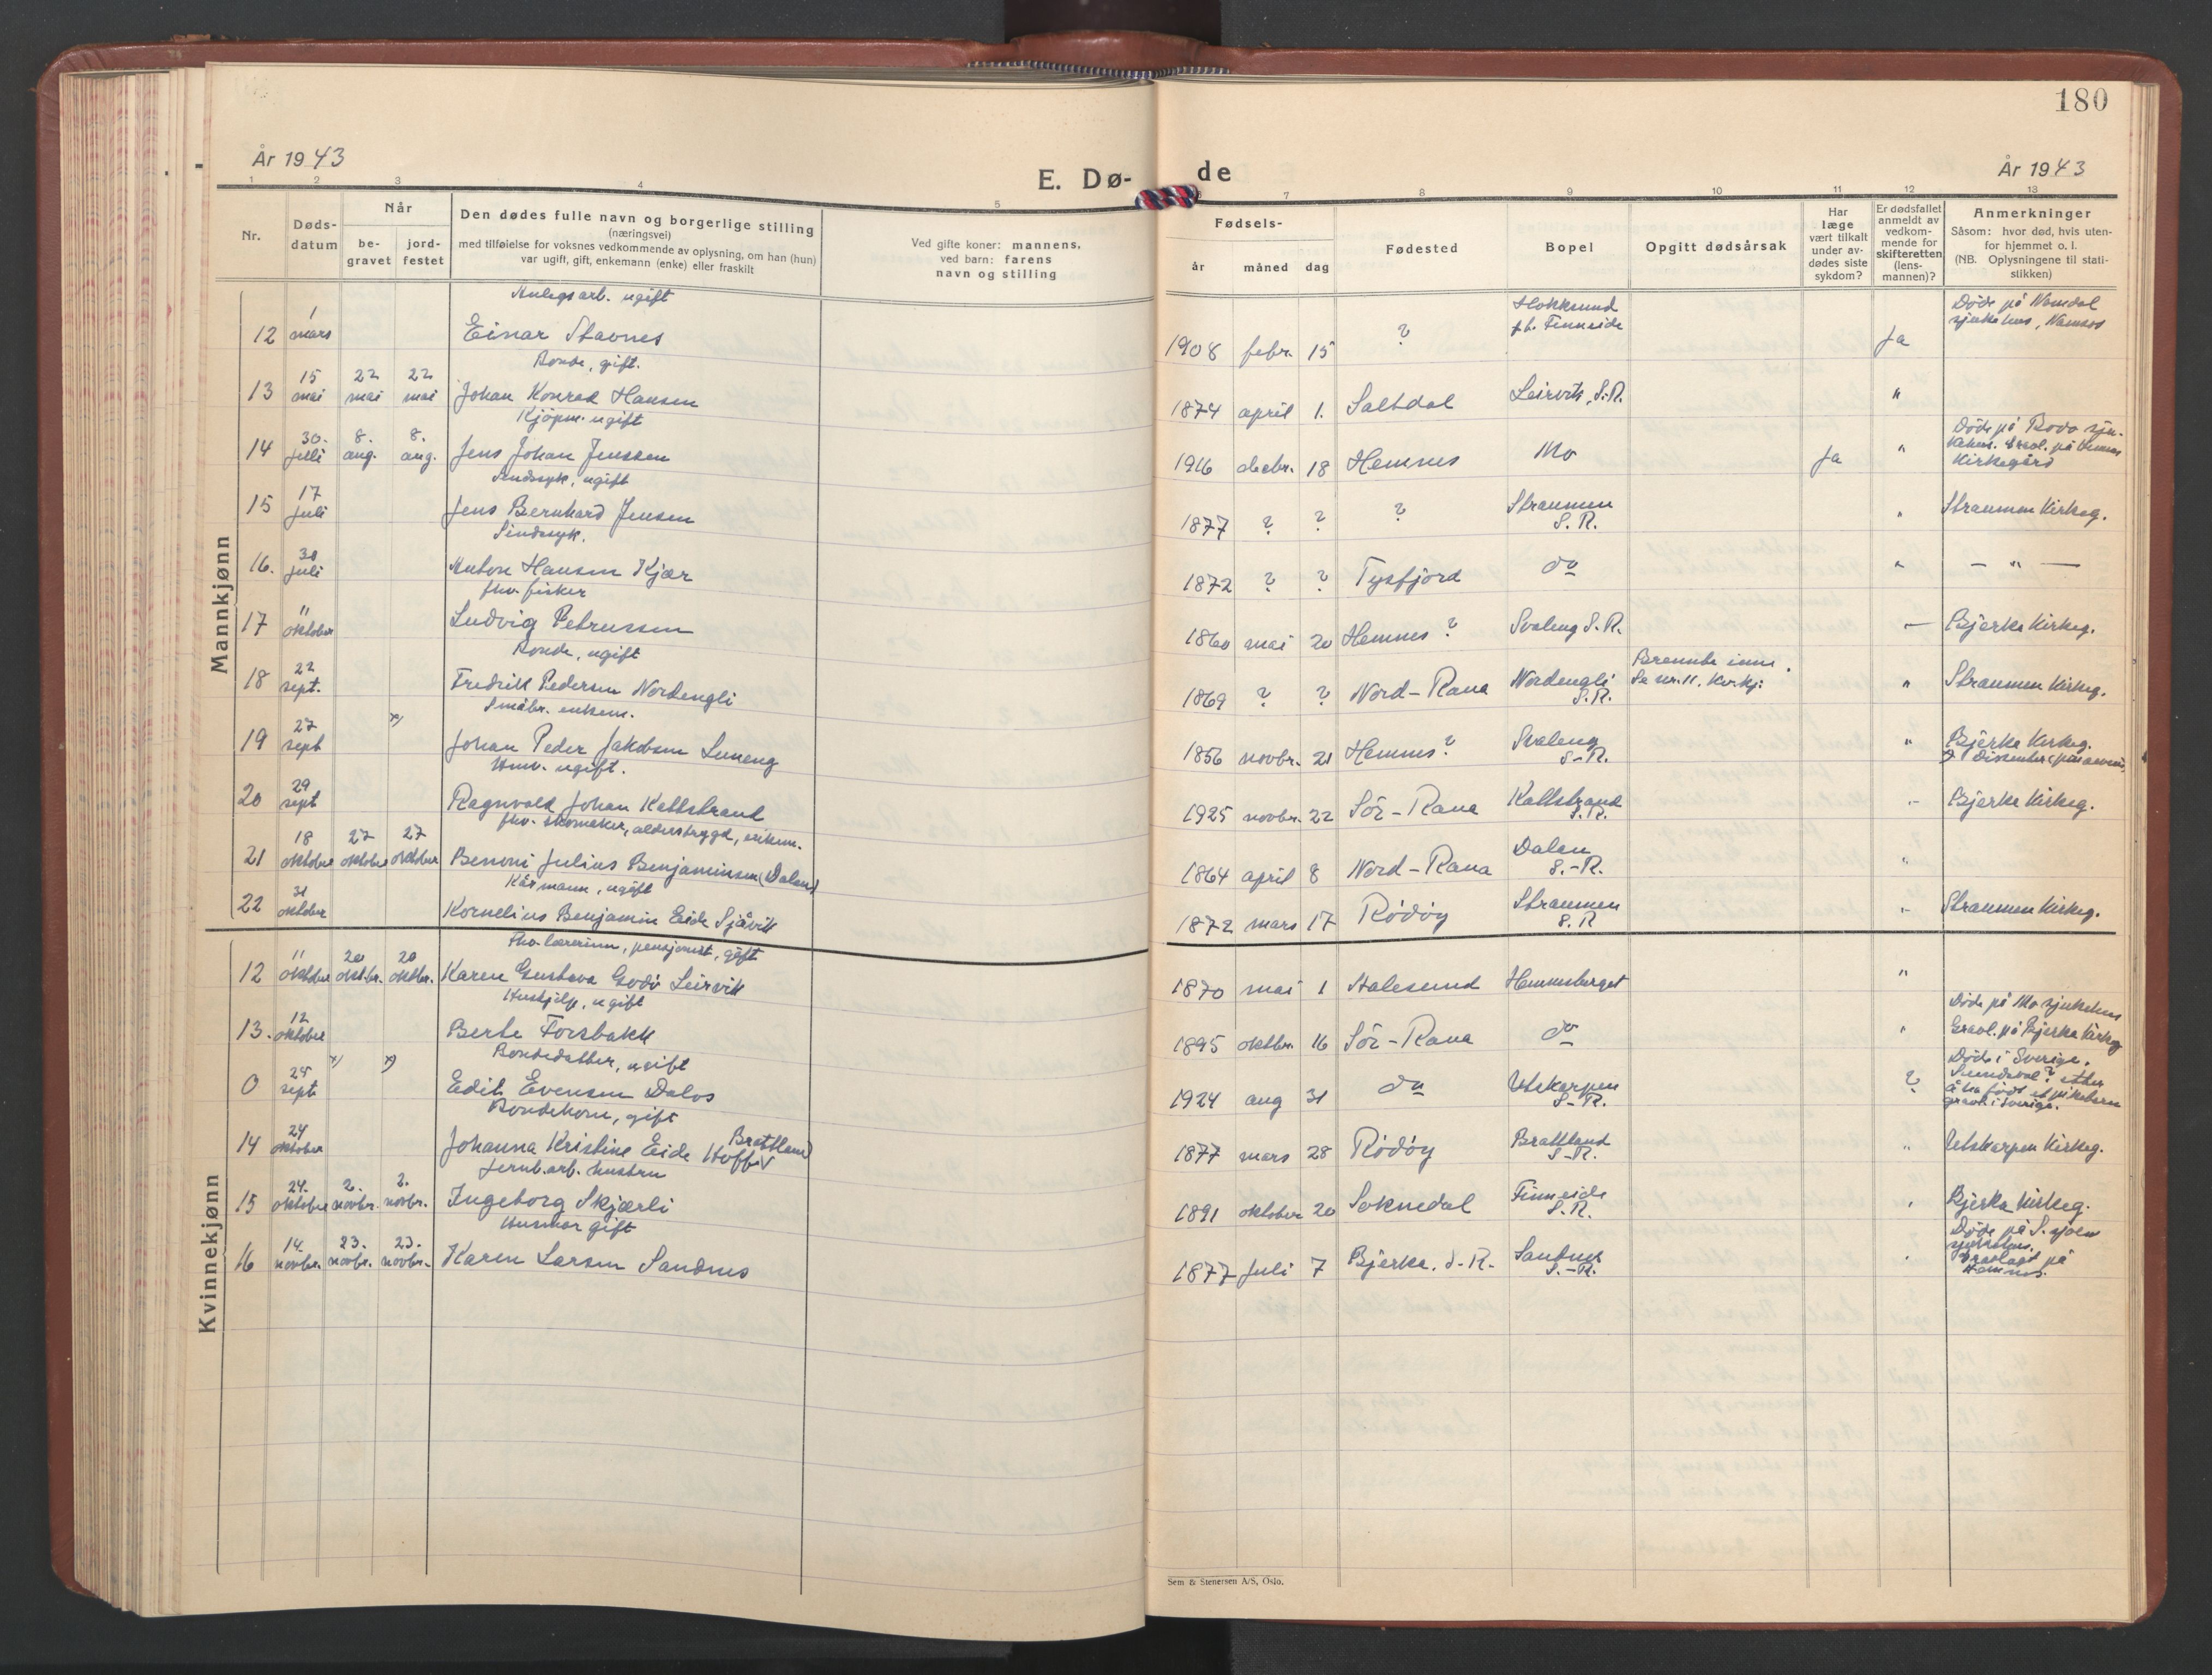 180
År 1943
E. Dø-
de
År 1943
1 2 3 4 5 7 8 9 10 11 12 13
Nr.
Døds-
datum
Når
be-
gravet
jord-
festet
Den dødes fulle navn og borgerlige stilling
(næringsvei)
med tilføielse for voksnes vedkommende av oplysning, om han (hun)
var ugift, gift, enkemann (enke) eller fraskilt
Ved gifte koner: mannens,
ved barn: farens
navn og stilling
Fødsels-
år måned dag
Fødested
Bopel
Opgitt dødsårsak
Har
læge
vært tilkalt
under av-
dødes siste
sykdom?
Er dødsfallet
anmeldt av
vedkom-
mende for
skifteretten
(lens-
mannen)?
Anmerkninger
Såsom: hvor død, hvis uten-
for hjemmet o. l.
(NB. Oplysningene til stati-
stikken)
Mannkjønn
Anlegsarb. ugift
12 1 mars Einar Stavnes 1908 febr. 15 ? Hokksund
p.t. Finneide Ja Døde på Namdal
sjukehus, Namsos
Bonde, gift.
13 15 mai 22 mai 22 mai Johan Konrad Hansen 1874 april 1. Saltdal Leirvik, S.R. "
Kjøpm. ugift
14 30. juli 8. aug. 8. aug. Jens Johan Jenssen 1916 decbr. 18 Hemnes Mo Ja " Døde på Bodø sju-
kehus. Gravl. på Hemnes
Kirkegård
Sindssyk, ugift
15 17 juli Jens Bernhard Jensen 1877 ? ? ? Straumen
S. R. " Straumen Kirkeg.
Sindssyk.
16. 30 juli Anton Hansen Kjær 1872 ? ? Tysfjord do " — " —
fhv. fisker
17 11 oktober Ludvig Petrussen 1860 mai 20 Hemnes ? Svaleng S.R. — Bjerka Kirkeg.
Bonde, ugift
18 22 sept. Fredrik Pedersen Nordengli 1869 ? ? Nord-Rana Nordengli
S.R. Brannte inne.
Se nr. 11. Kvkj: " Straumen Kirkeg.
Småbr. enkem.
19 27 sept x) Johan Peder Jakobsen Luneng 1856 novbr. 21 Hemnes ? Svaleng
S-R. " Bjerka Kirkeg.
x) Dissenter
ugift.
20 29 sept Ragnvald Johan Kattstrand 1925 novbr. 22 Sör-Rana Kattstrand
S.R. " Bjerka Kirkeg.
fhv. skomaker, alderstrygd, enkem.
21 18 oktober 27 oktober 27 oktober Benoni Julius Benjaminsen (Dalen) 1864 april 8 Nord-Rana Dalen
S.-R. "
Kårmann, ugift
22 31 oktober Kornelius Benjamin Eide Sjåvik 1872 mars 17 Rödöy Straumen
S.R " Straumen Kirkeg.
Kvinnekjønn
Fhv. lærerinne, pensjonist, gift
12 11 oktober 20 oktbr. 20 oktbr. Karen Gustava Godö Leirvik 1870 mai 1 Aalesund Hemnesberget "
Hushjelp, ugift
13. 12 oktober Berte Forsbakk 1895 oktbr. 16 Sör-Rana do " Döde på Mo sjukehus
Gravl. på Bjerka Kirkeg
Bondedatter, ugift
0 25 sept x) x) Edit Evensen Dalos 1924 aug 31 do Utskarpen
S-R. ? Døde i Sverige.
Sundsval? etter
å ha født et pikebarn
gravl. i Sverige.
Bondekone, gift
14 24 oktober Johanna Kristine Eide Hoff Brattland 1877 mars 28 Rödöy Brattland
S-R. " Utskarpen Kirkeg.
Jernb.arb. hustru
15 24. oktober 2. novbr. 2. novbr. Ingeborg Skjærli 1891 oktober 20 Soknedal Finneide
S.R. " Bjerka Kirkeg.
Husmor gift
16 14. novbr. 23. novbr. 23. novbr. Karen Larsen Sandnes 1877 Juli 7 Bjerka, S-R. Sandnes
S.-R. " Døde på S. sjoen
sjukehus.
Gravlagt på
Hemnes.
Sem & Stenersen A/S, Oslo.